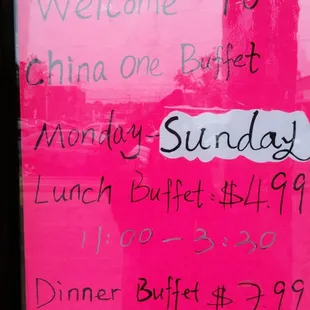 Welcome To
China One Buffet
Monday-Sunday
Lunch Buffet: $4.99
11:00 - 3:30
Dinner Buffet $7.99